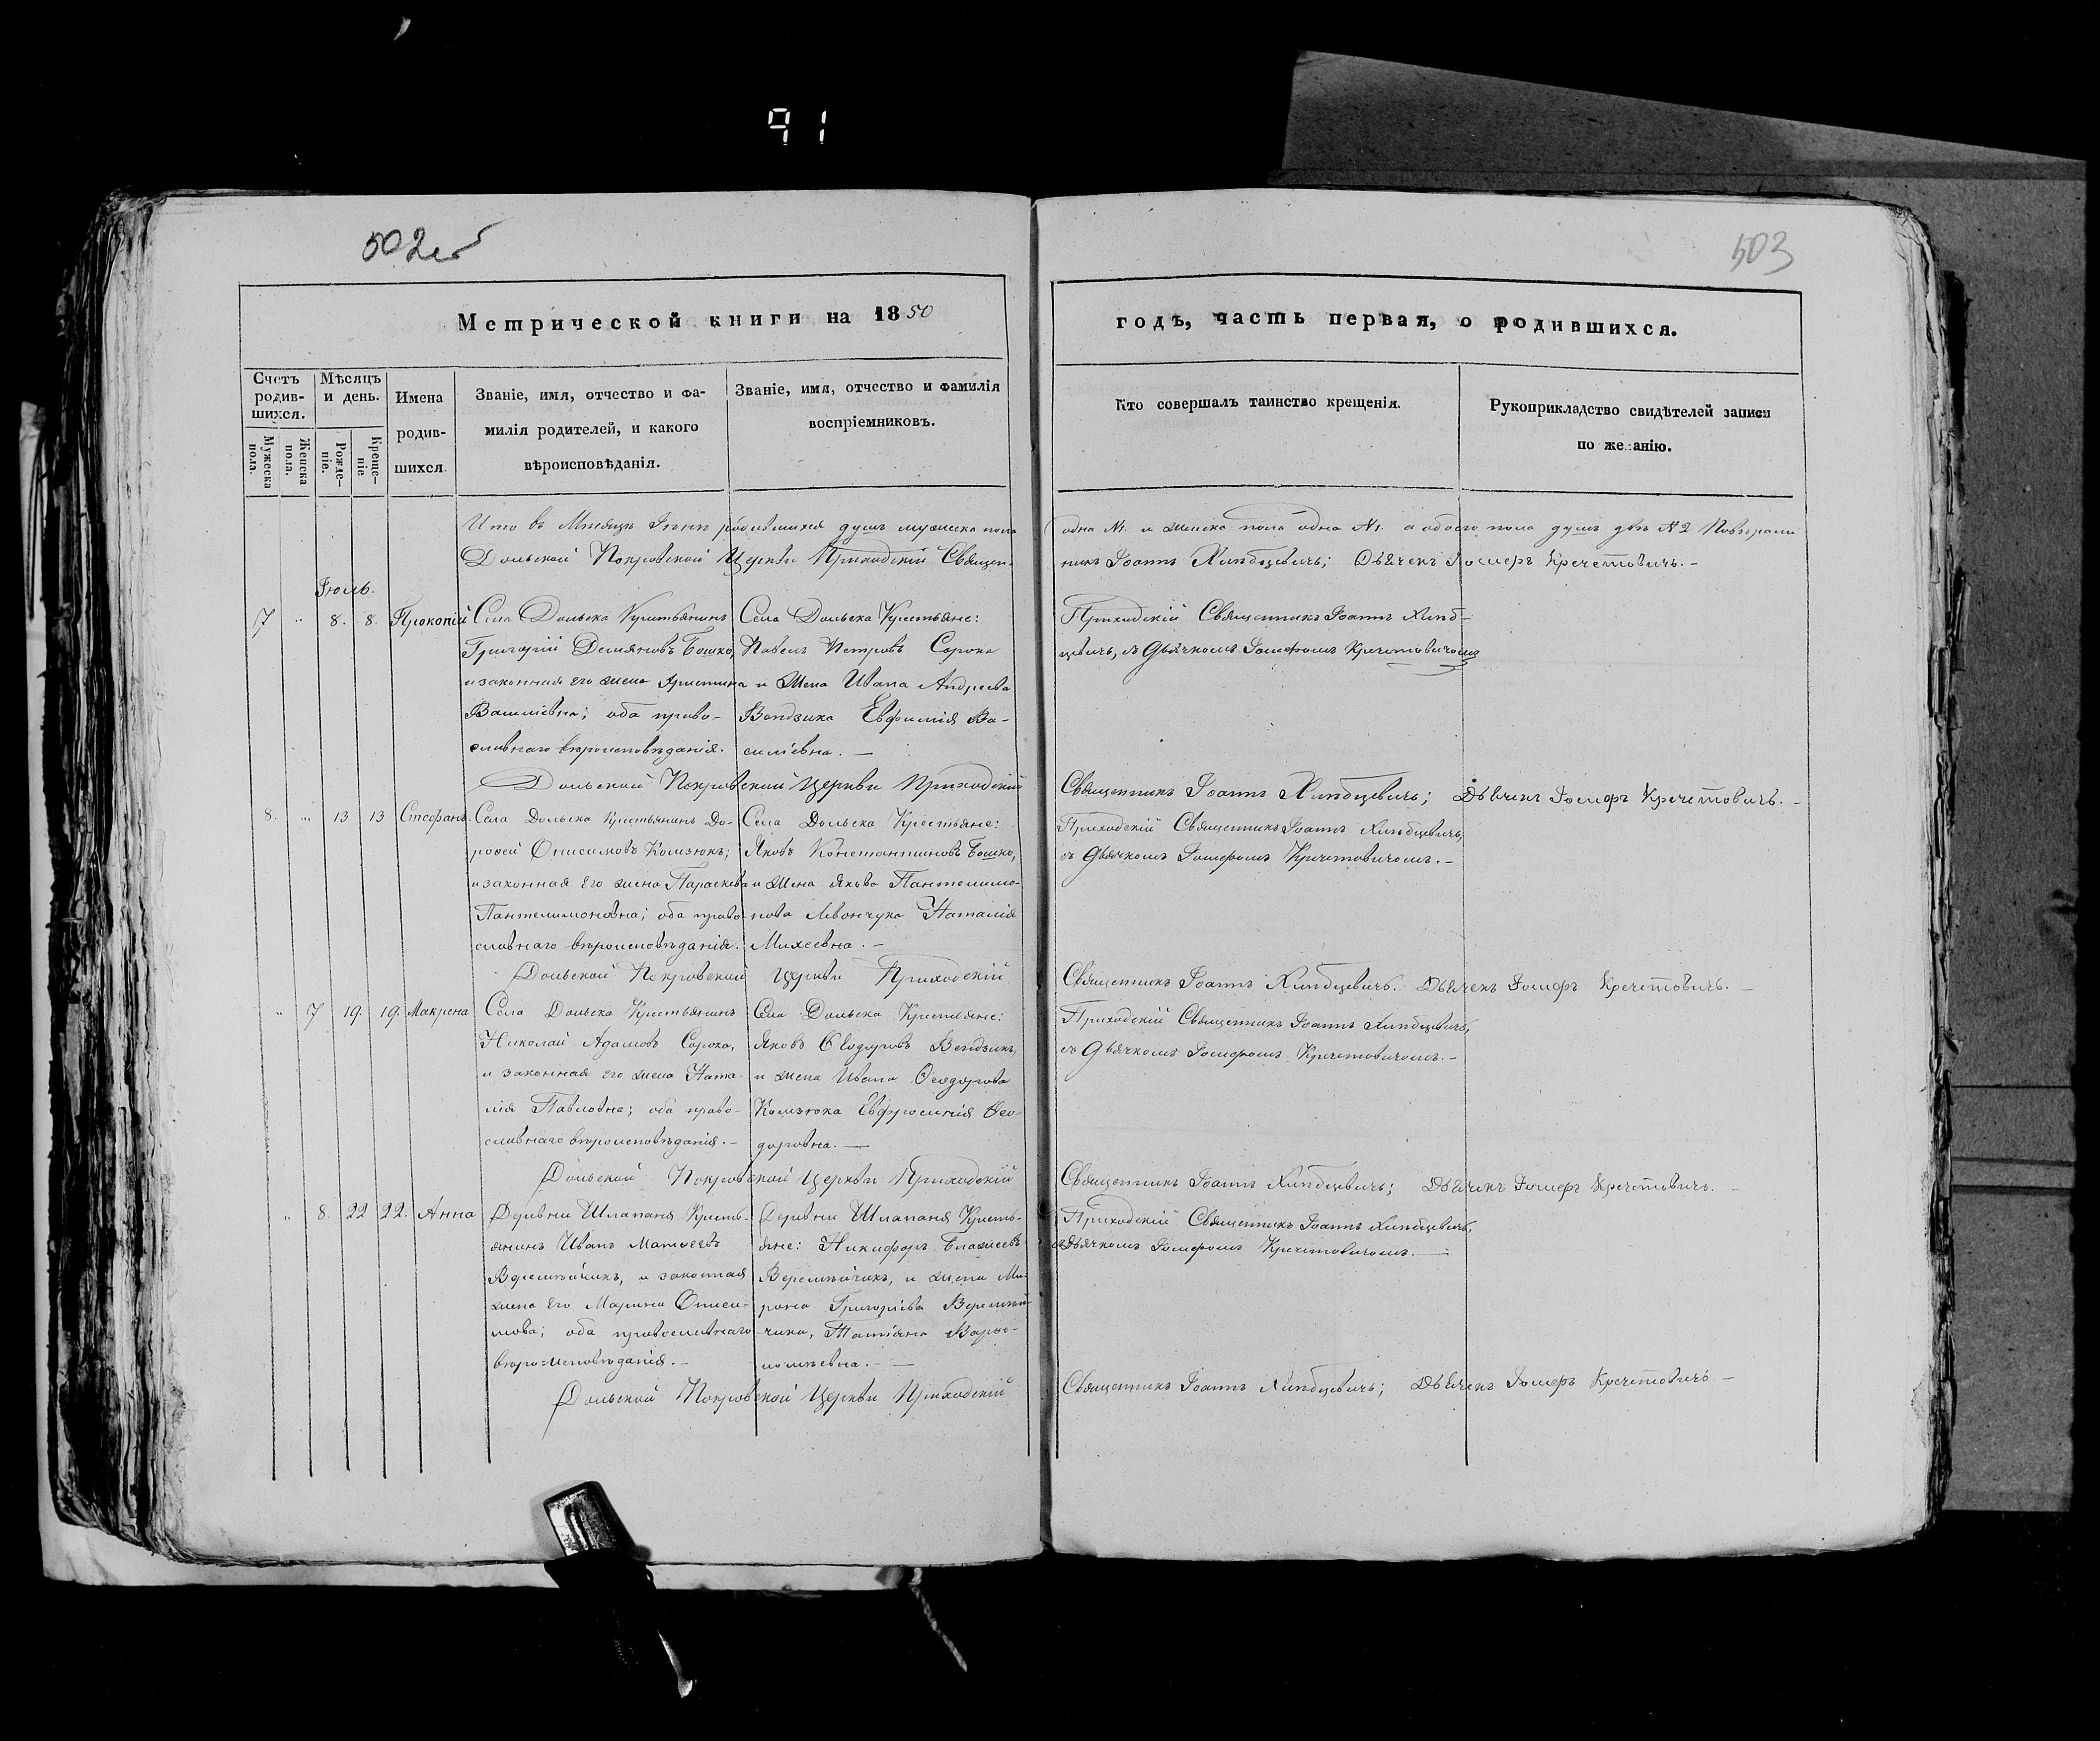 91
502об
503
Метрической книги на 1850
годъ, часть первая, о родившихся.
Счетъ родив-шихся.
Мужеска пола.
Женска пола.
Мѣсяцъ и день.
Рожде-ніе.
Креще-ніе
Имена родив-шихся.
Званіе, имя, отчество и фа-
милія родителей, и какого
вѣроисповѣданія.
Званіе, имя, отчество и фамилія
воспріемниковъ.
Кто совершалъ таинство крещенія.
Рукоприкладство свидѣтелей записи
по желанію.
Что въ Мѣсяцѣ Іюнѣ родившихся душъ мужеска пола одна №1. и женска пола одна №1. а обоего пола душъ двѣ №2
Дольской Покровской Церкви Приходскій Священ-никъ Іоаннъ Хлѣбцевичь; Дьячекъ Іосифъ Кречетовичъ.-
Іюль.
7 " 8. 8. Прокопій
Села Дольска Крестьянинъ
Григорій Демяновъ Бошко,
и законная его жена Христина
Васильевна; оба право-
славнаго вѣроисповѣданія.
Села Дольска Крестьяне:
Павелъ Петровъ Сорока
и Жена Ивана Андреева
Вендзика Евфимія Ва-
сильевна. —
Приходскій Священникъ Іоаннъ Хлѣб-
цевичь, съ Дьячкомъ Іосифомъ Кречетовичомъ
Дольской Покровской Церкви Приходскій Священникъ Іоаннъ Хлѣбцевичь; Дьячекъ Іосифъ Кречетовичъ. -
8. " 13 13 Стефанъ.
Села Дольска Крестьянинъ До-
рофей Онисимовъ Комзюкъ;
и законная Его жена Параскева
Пантелимоновна; оба право-
славнаго вѣроисповѣданія.
Села Дольска Крестьяне:
Яковъ Константиновъ Бошко,
и Жена Якова Пантелимо-
нова Левончука Наталія
Михеевна. -
Приходскій Священникъ Іоаннъ Хлѣбцевичь,
съ Дьячкомъ Іосифомъ Кречетовичомъ. -
Дольской Покровской Церкви Приходскій Священникъ Іоаннъ Хлѣбцевичь. Дьячекъ Іосифъ Кречетовичъ. -
" 7 19. 19. Макрена
Села Дольска Крестьянинъ
Николай Адамовъ Сорока,
и законная его жена Ната-
лія Павловна; оба право-
славнаго вѣроисповѣданія. -
Села Дольска Крестьяне:
Яковъ Ѳеодоровъ Вендзикъ,
и жена Ивана Ѳеодорова
Комзюка Евфросинія Ѳео-
доровна. —
Приходскій Священникъ Іоаннъ Хлѣбцевичь,
съ Дьячкомъ Іосифомъ Кречетовичомъ. -
Дольской Покровской Церкви Приходскій Священникъ Іоаннъ Хлѣбцевичь; Дьячекъ Іосифъ Кречетовичъ. -
" 8. 22 22. Анна
Деревни Шлапаня Кресть-
янинъ Иванъ Матѳеевъ
Веремѣйчикъ, и законная
жена Его Марина Ониси-
мова; оба православнаго
вѣро=исповѣданія. -
Деревни Шлапаня Кресть-
яне: Никифоръ Евловсеевъ
Веремѣйчикъ, и жена Ми-
рона Григоріева Веремѣй-
чика, Татіяна Варѳо-
ломѣевна. - —
Приходскій Священникъ Іоаннъ Хлѣбцевичь,
съ Дьячкомъ Іосифомъ Кречетовичомъ. —
Дольской Покровской Церкви Приходскій Священникъ Іоаннъ Хлѣбцевичь; Дьячекъ Іосифъ Кречетовичъ -